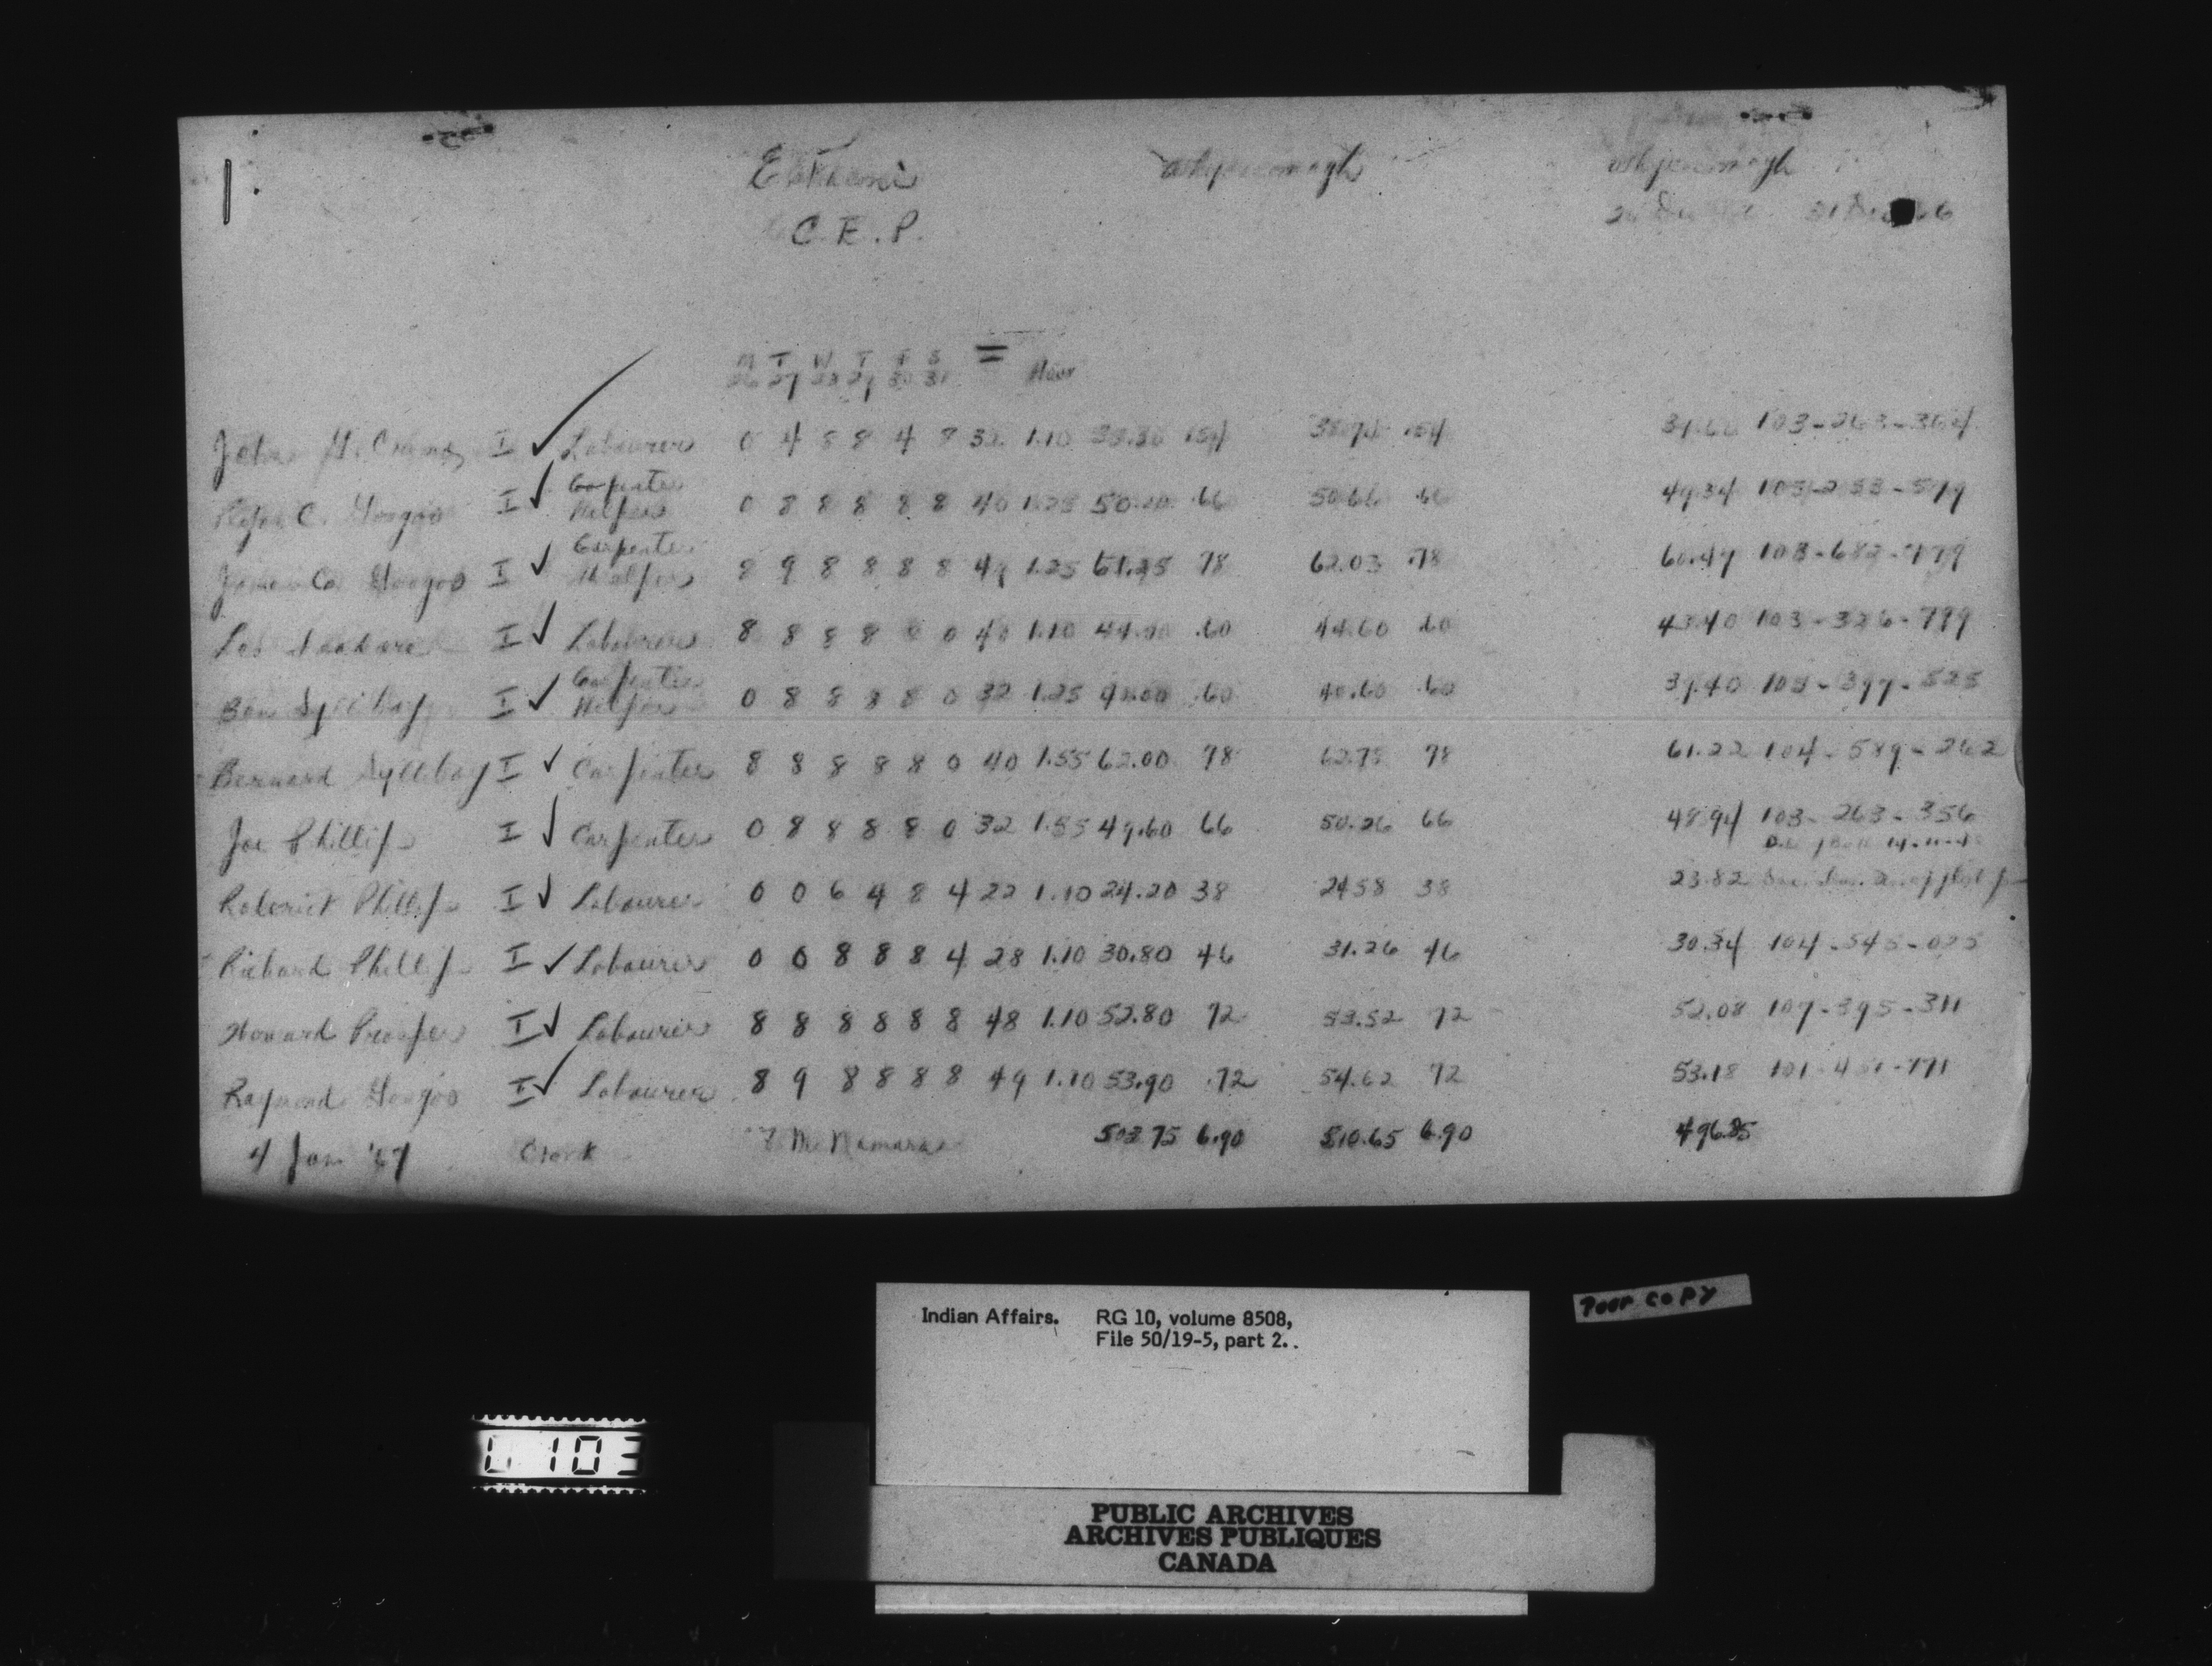 Eskasoni Whycocomagh Whycocomagh
C.E.P. 31 Dec 66
M T W T F S =
26 27 28 29 30 31 Hour
John I ✓ Labourer 0 4 8 8 4 8 32 1.10 .54 .54 103-263-364
C. Googoo I ✓ Carpenter Helper 0 8 8 8 8 8 40 1.25 50.00 .66 50.66 .66 49.34
James Googoo I ✓ Carpenter Helper 8 9 8 8 8 8 49 1.25 61.25 78 62.03 .78 60.47 103-682-779
I ✓ Labourer 8 8 8 8 8 0 40 1.10 44.00 .60 44.60 .60 43.40 103-326-799
Ben Sylliboy I ✓ Carpenter Helper 0 8 8 8 8 0 32 1.25 40.00 .60 40.60 .60 39.40 103-397-525
Bernard Sylliboy I ✓ Carpenter 8 8 8 8 8 0 40 1.55 62.00 78 62.78 78 61.22 104-589-262
Joe Phillips I ✓ Carpenter 0 8 8 8 8 0 32 1.55 49.60 66 50.26 66 48.94 103-263-356
Roderick Phillips I ✓ Labourer 0 0 6 4 8 4 22 1.10 24.20 38 24.58 38 23.82
Richard Phillips I ✓ Labourer 0 0 8 8 8 4 28 1.10 30.80 46 31.26 46 30.34 104-545-025
Howard Prosper I ✓ Labourer 8 8 8 8 8 8 48 1.10 52.80 72 53.52 72 52.08 107-395-311
Raymond Googoo I ✓ Labourer 8 9 8 8 8 8 49 1.10 53.90 .72 54.62 72 53.18
4 Jan '67 Clerk McNamara 503.75 6.90 510.65 6.90 496.85
Poor copy
Indian Affairs. RG 10, volume 8508,
File 50/19-5, part 2.
103
PUBLIC ARCHIVES
ARCHIVES PUBLIQUES
CANADA